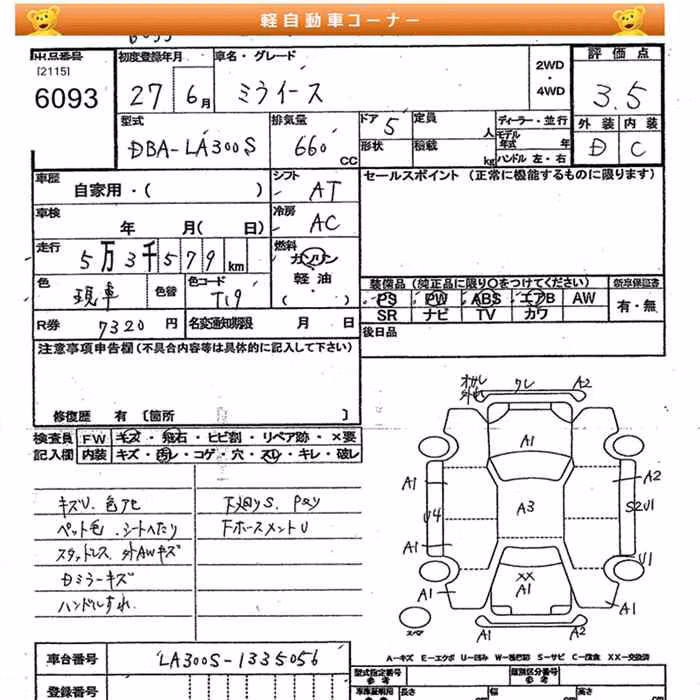 軽自動車コーナー
出品番号 初度登録年月 車名・グレード 2WD ・ 4WD 評価点
[2115]
6093 27 6月 ミライース 3.5
型式 排気量 ドア 定員 ディーラー・並行 外装 内装
DBA-LA300S 660 CC 5 人 モデル年式 年 D C
形状 積載 kg ハンドル 左・右
車歴 自家用・( ) シフト AT セールスポイント (正常に機能するものに限ります)
車検 年 月( 日) 冷房 AC
走行 5万3千579km 燃料 ガソリン
軽油
( )
色 現車 色替 色コード T19
装備品 (純正品に限り○をつけてください) 新車保証書
PS PW ABS エアB AW 有・無
SR ナビ TV カワ
R券 7320円 名変通知期限 月 日 後日品
注意事項申告欄(不具合内容等は具体的に記入して下さい)
修復歴 有 [箇所 ]
検査員 FW キズ・飛石・ヒビ割・リペア跡・×要
記入欄 内装 キズ・汚レ・コゲ・穴・スレ・キレ・破レ
キズU.色アセ
ペット毛.シートヘたり
スタッドレス.外AWキズ
Dミラーキズ
ハンドルすれ
下廻りS.PキY
Fホースメント U
ワレ A2
A1
A1 A2
U4 A3 S2 U1
A1 U1
××
A1
A1 A1
A1 A2
スペア
A-キズ E-エクボ U-凹み W-補修跡 S-サビ C-腐食 XX-交換済
車台番号 LA300S-1335056
登録番号
型式指定番号 類別区分番号
参考 参考
車庫証明用 長さ 幅 高さ